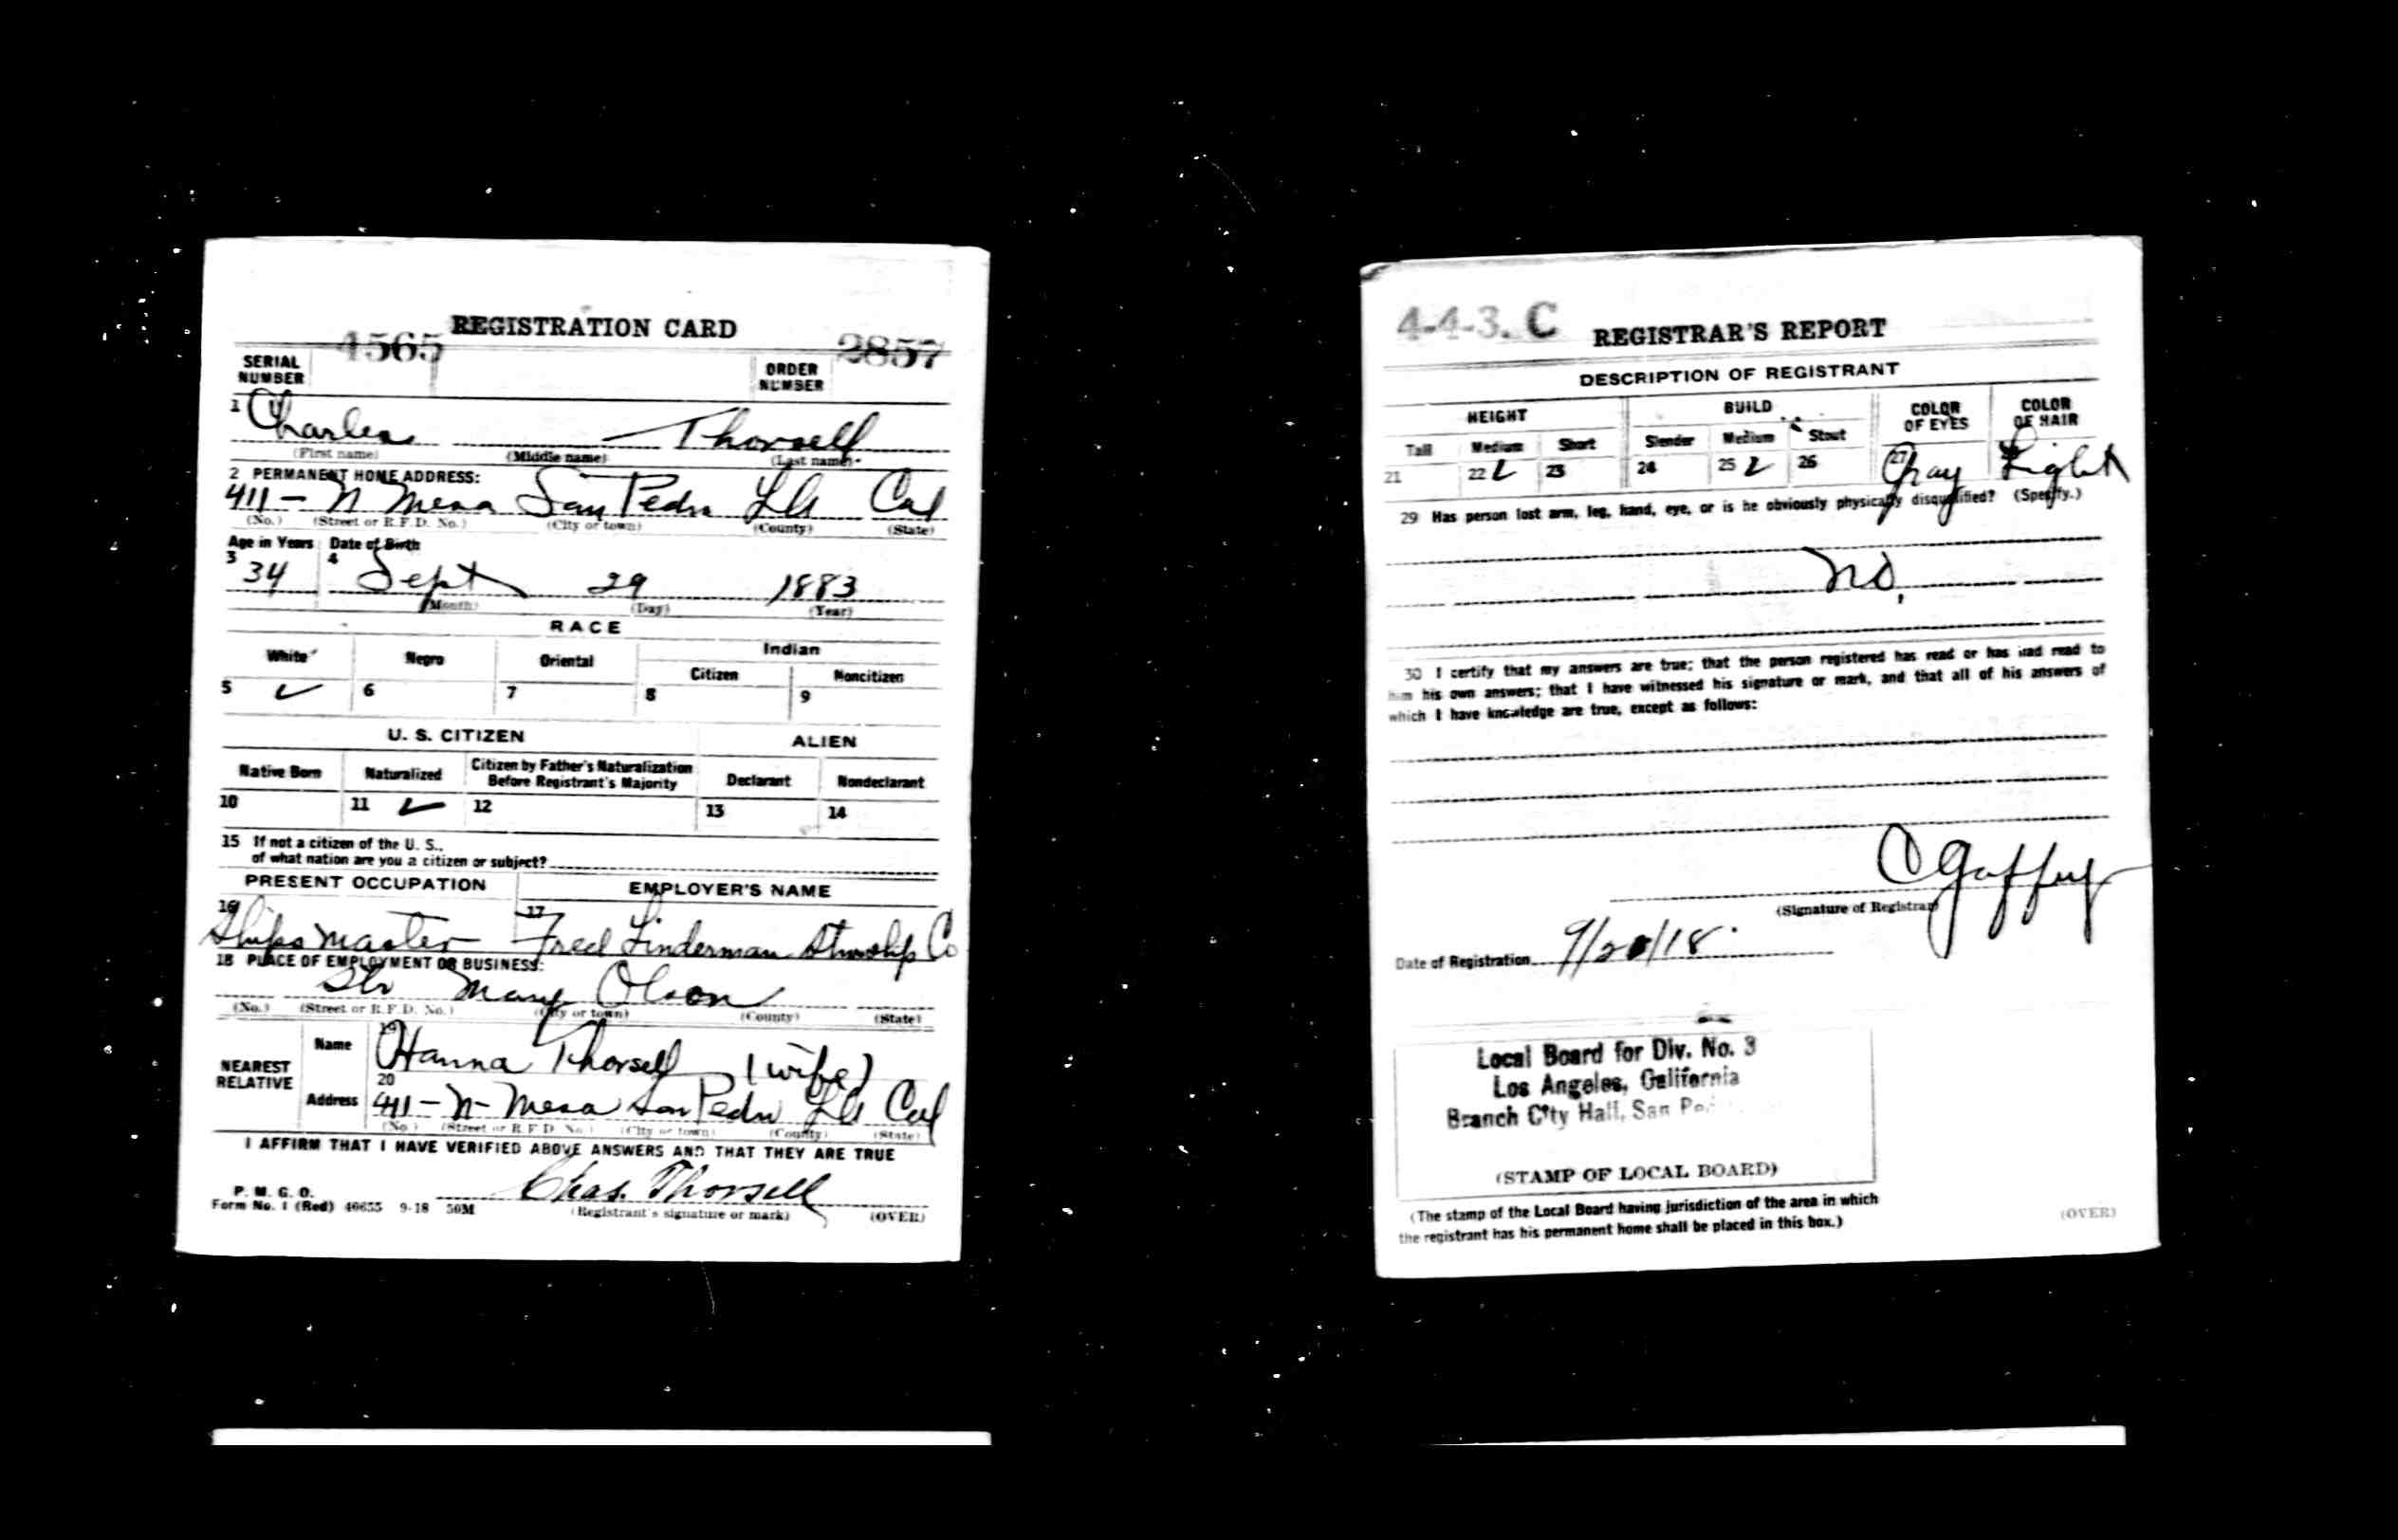 REGISTRATION CARD
SERIAL NUMBER 4565 ORDER NUMBER 2857
1 Charles Thorsell
(First name) (Middle name) (Last name)
2 PERMANENT HOME ADDRESS:
411 - N Mesa San Pedro LA Cal
(No.) (Street or R.F.D. No.) (City or town) (County) (State)
Age in Years Date of Birth
3 34 4 Sept 29 1883
(Month) (Day) (Year)
RACE
White Negro Oriental Indian
Citizen Noncitizen
5 ✓ 6 7 8 9
U. S. CITIZEN ALIEN
Native Born Naturalized Citizen by Father's Naturalization Before Registrant's Majority Declarant Nondeclarant
10 11 ✓ 12 13 14
15 If not a citizen of the U. S.,
of what nation are you a citizen or subject?
PRESENT OCCUPATION EMPLOYER'S NAME
16 Ships Master 17 Fred Linderman Stmship Co
18 PLACE OF EMPLOYMENT OR BUSINESS:
Str Mary Olson
(No.) (Street or R.F.D. No.) (City or town) (County) (State)
NEAREST RELATIVE
Name 19 Hanna Thorsell (wife)
Address 20 411 - N - Mesa San Pedro LA Cal
(No.) (Street or R.F.D. No.) (City or town) (County) (State)
I AFFIRM THAT I HAVE VERIFIED ABOVE ANSWERS AND THAT THEY ARE TRUE
P. M. G. O.
Form No. 1 (Red) 40655 9-18 50M
Chas. Thorsell
(Registrant's signature or mark) (OVER)
4-4-3. C REGISTRAR'S REPORT
DESCRIPTION OF REGISTRANT
HEIGHT BUILD COLOR OF EYES COLOR OF HAIR
Tall Medium Short Slender Medium Stout
21 22 ✓ 23 24 25 ✓ 26 27 Gray Light
29 Has person lost arm, leg, hand, eye, or is he obviously physically disqualified? (Specify.)
No,
30 I certify that my answers are true; that the person registered has read or has had read to
him his own answers; that I have witnessed his signature or mark, and that all of his answers of
which I have knowledge are true, except as follows:
C Gaffey
(Signature of Registrar)
Date of Registration 9/20/18
Local Board for Div. No. 3
Los Angeles, California
Branch City Hall, San
(STAMP OF LOCAL BOARD)
(The stamp of the Local Board having jurisdiction of the area in which
the registrant has his permanent home shall be placed in this box.)
(OVER)